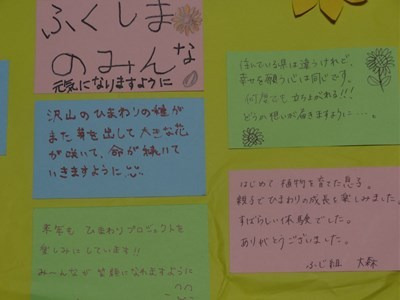 ふくしま
のみんな
元気になりますように
沢山のひまわりの種が
また芽を出して大きな花
が咲いて、命が続いて
いきますように
本年も ひまわりプロジェクトを
楽しみにしています!!
みーんなが 笑顔になれますように
住んでいる県は違うけれど、
幸せを願う心は同じです。
何度でも 立ち上がれる!!!
どうか想いが届きますように…。
はじめて 植物を育てた息子。
親子でひまわりの成長を楽しみました。
すばらしい体験でした。
ありがとうございました。
ふじ組 大森